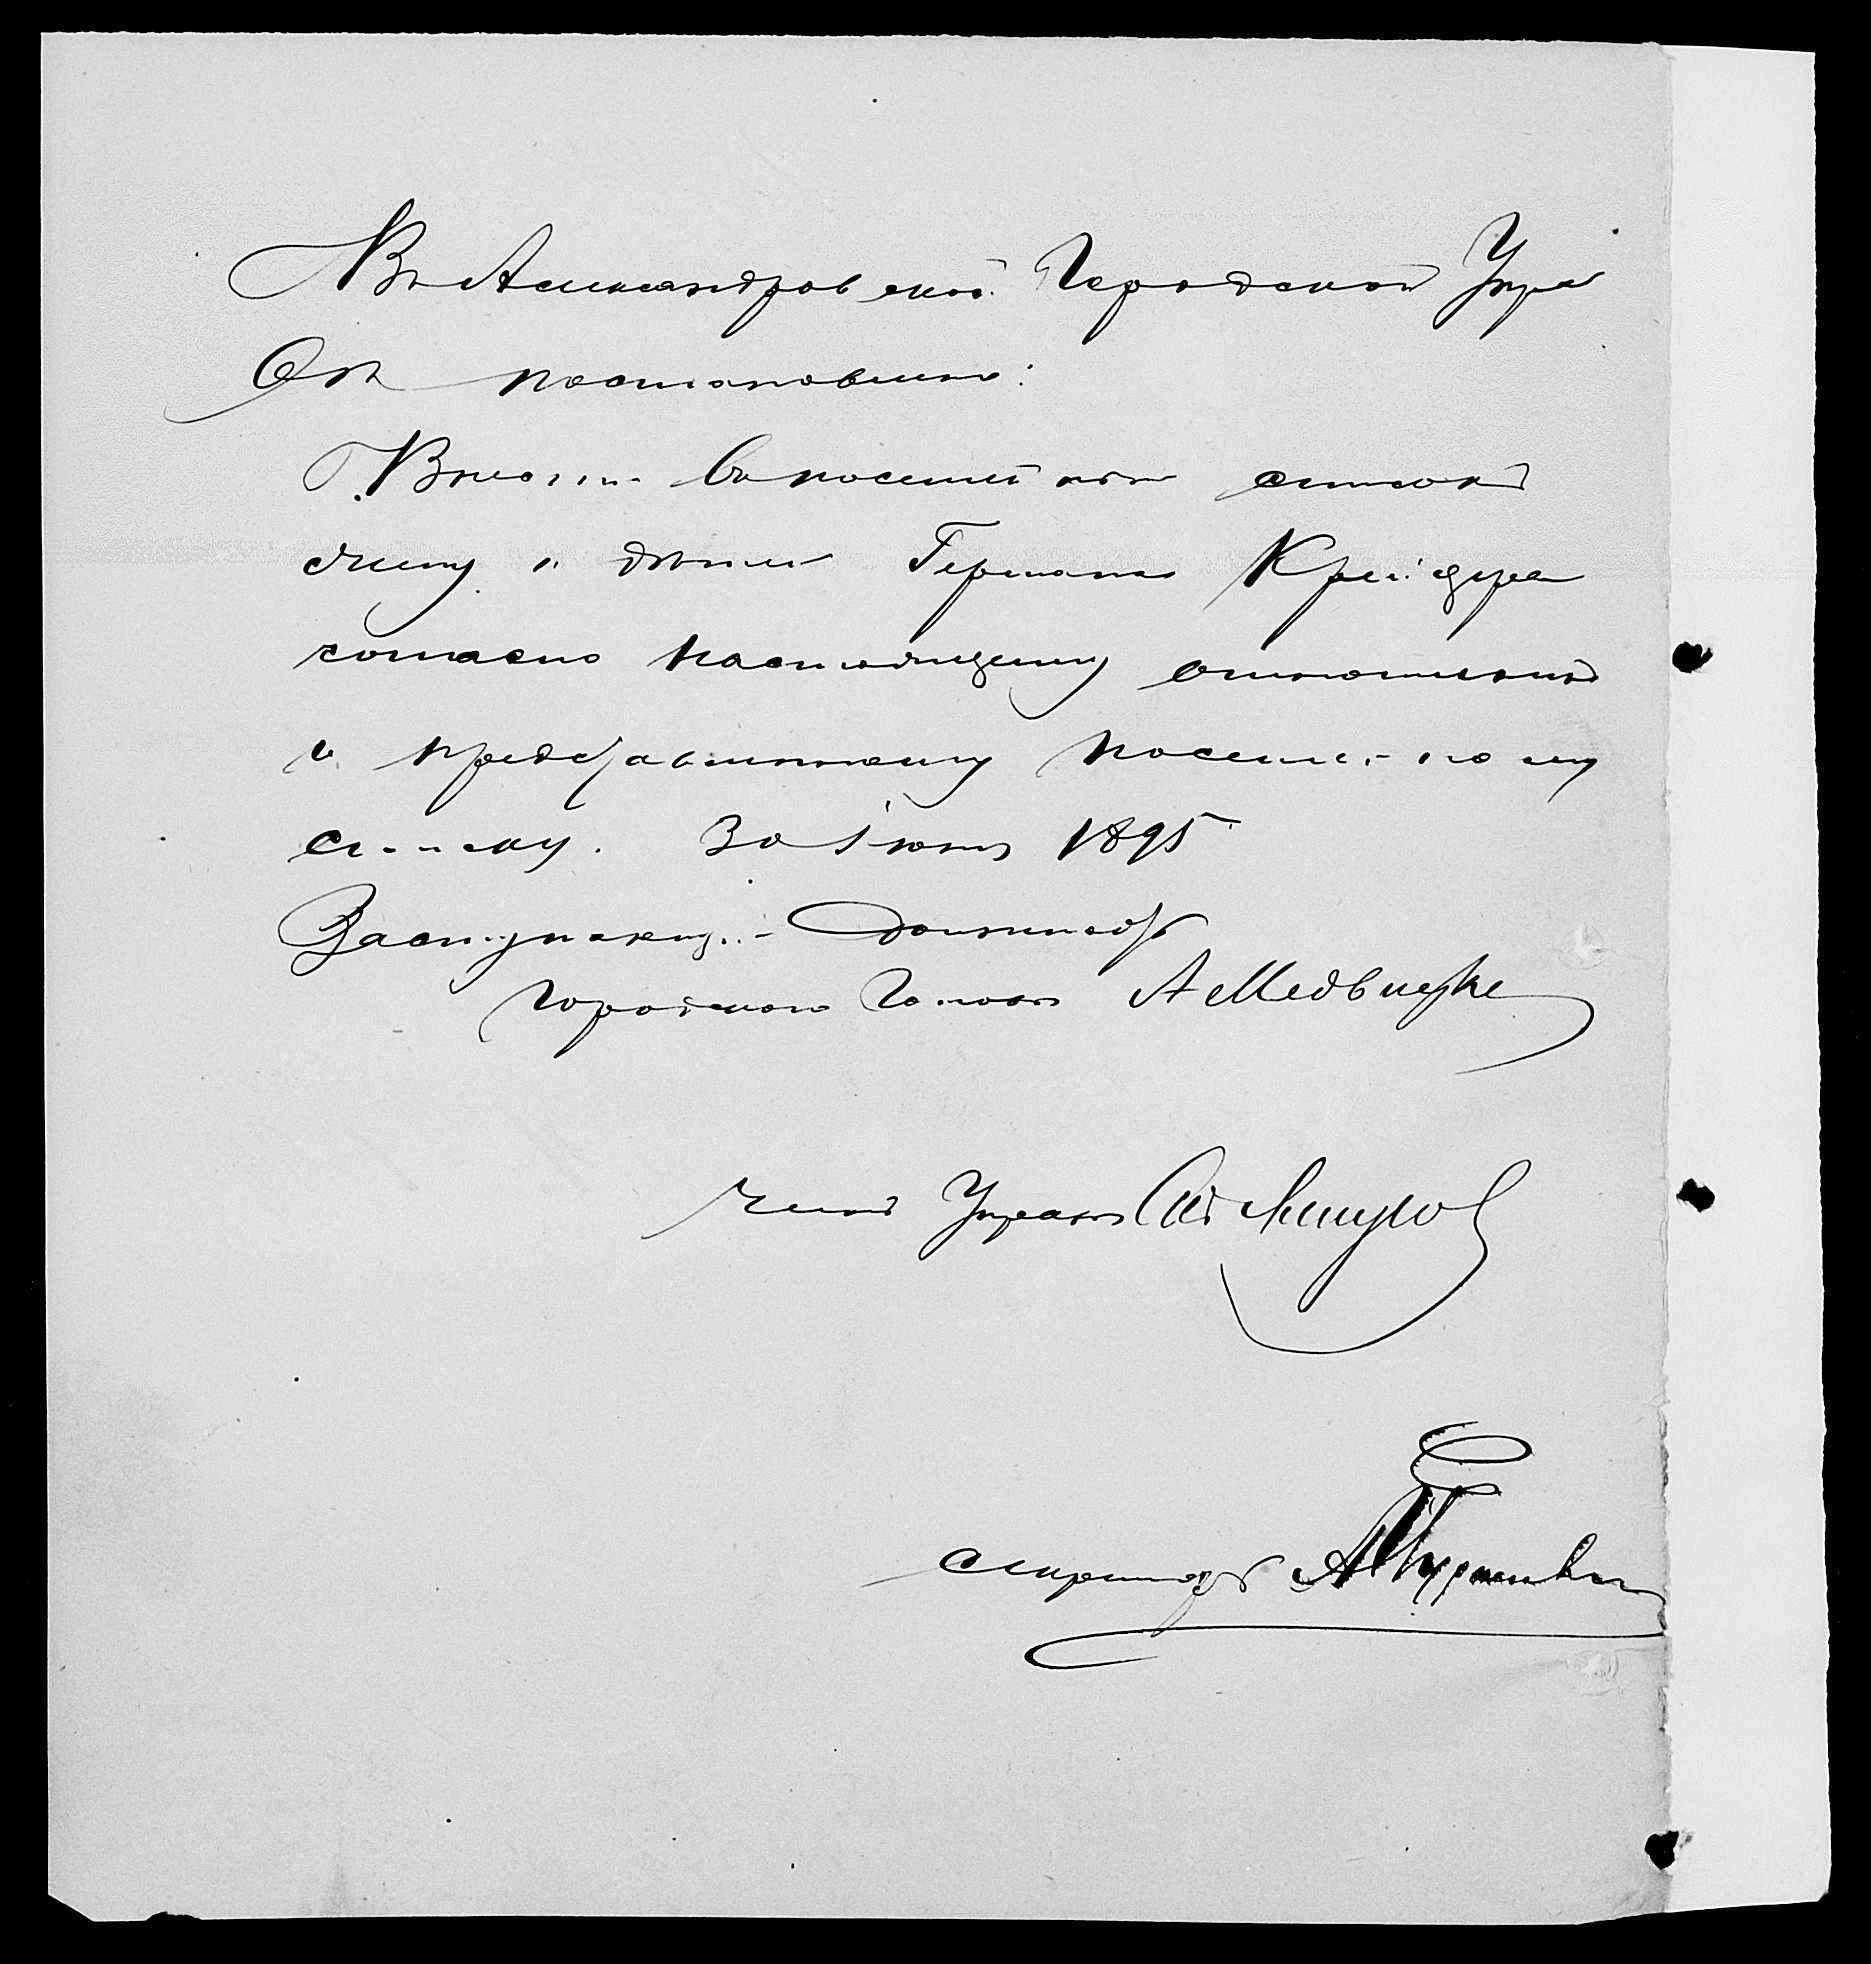 Въ Александровской Городской Упра
Ѳѣ постановлено:
Внести въ посемейный списокъ
жену и детей Германа Крейцера
согласно настоящему отношенію
и представленному посемейному
списку. 30 Іюня 1895
Заступающій должность
Городского Головы А Медведке
Членъ Управы
Секретарь